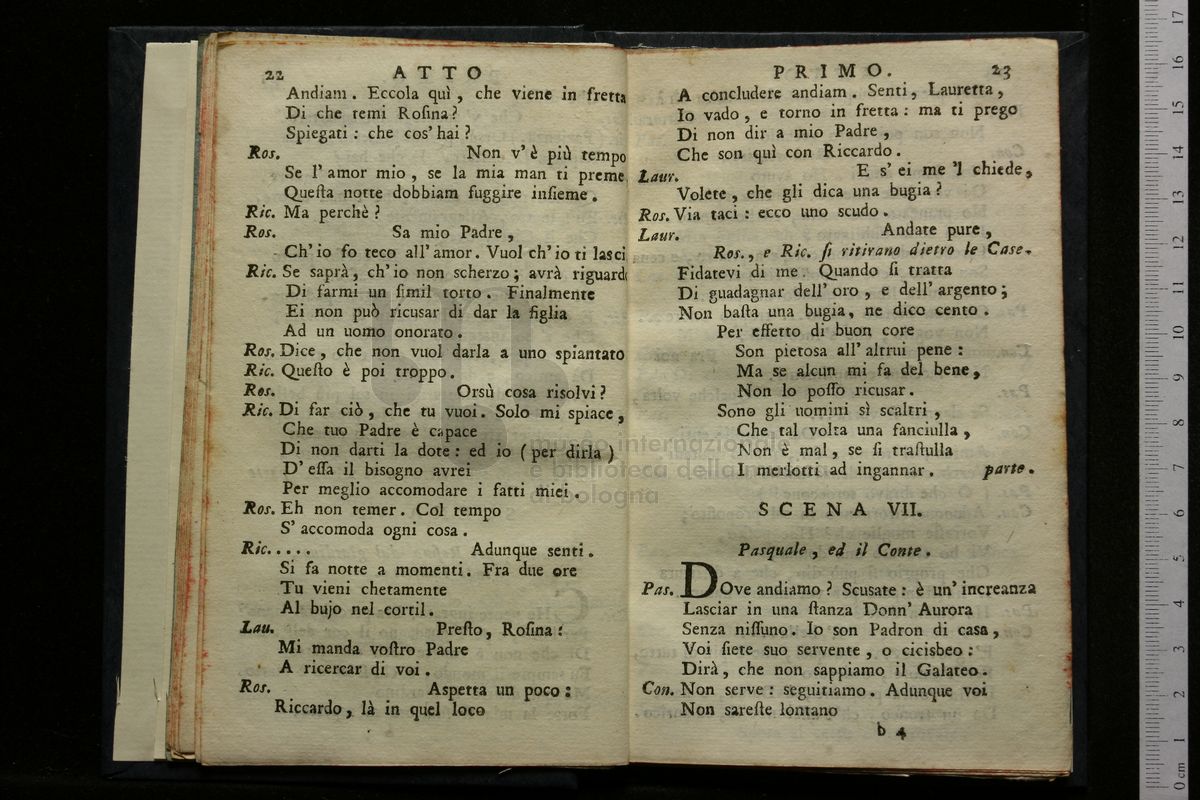 22 ATTO
Andiam. Eccola quì, che viene in fretta
Di che temi Rosina?
Spiegati: che cos' hai?
Ros. Non v'è più tempo
Se l'amor mio, se la mia man ti preme
Questa notte dobbiam fuggire insieme.
Ric. Ma perchè?
Ros. Sa mio Padre,
Ch'io fo teco all'amor. Vuol ch'io ti lasci
Ric. Se saprà, ch'io non scherzo; avrà riguardo
Di farmi un simil torto. Finalmente
Ei non può ricusar di dar la figlia
Ad un uomo onorato.
Ros. Dice, che non vuol darla a uno spiantato
Ric. Questo è poi troppo.
Ros. Orsù cosa risolvi?
Ric. Di far ciò, che tu vuoi. Solo mi spiace,
Che tuo Padre è capace
Di non darti la dote: ed io (per dirla)
D'essa il bisogno avrei
Per meglio accomodare i fatti miei.
Ros. Eh non temer. Col tempo
S'accomoda ogni cosa.
Ric..... Adunque senti.
Si fa notte a momenti. Fra due ore
Tu vieni chetamente
Al bujo nel cortil.
Lau. Presto, Rosina:
Mi manda vostro Padre
A ricercar di voi.
Ros. Aspetta un poco:
Riccardo, là in quel loco
PRIMO. 23
A concludere andiam. Senti, Lauretta,
Io vado, e torno in fretta: ma ti prego
Di non dir a mio Padre,
Che son quì con Riccardo.
Laur. E s'ei me 'l chiede,
Volete, che gli dica una bugia?
Ros. Via taci: ecco uno scudo.
Laur. Andate pure,
Ros., e Ric. si ritirano dietro le Case.
Fidatevi di me. Quando si tratta
Di guadagnar dell'oro, e dell'argento;
Non basta una bugia, ne dico cento.
Per effetto di buon core
Son pietosa all'altrui pene:
Ma se alcun mi fa del bene,
Non lo posso ricusar.
Sono gli uomini sì scaltri,
Che tal volta una fanciulla,
Non è mal, se si trastulla
I merlotti ad ingannar. parte.
SCENA VII.
Pasquale, ed il Conte.
Pas. DOve andiamo? Scusate: è un'increanza
Lasciar in una stanza Donn'Aurora
Senza nissuno. Io son Padron di casa,
Voi siete suo servente, o cicisbeo:
Dirà, che non sappiamo il Galateo.
Con. Non serve: seguitiamo. Adunque voi
Non sareste lontano
b 4
museo internazionale
e biblioteca della musica
di bologna